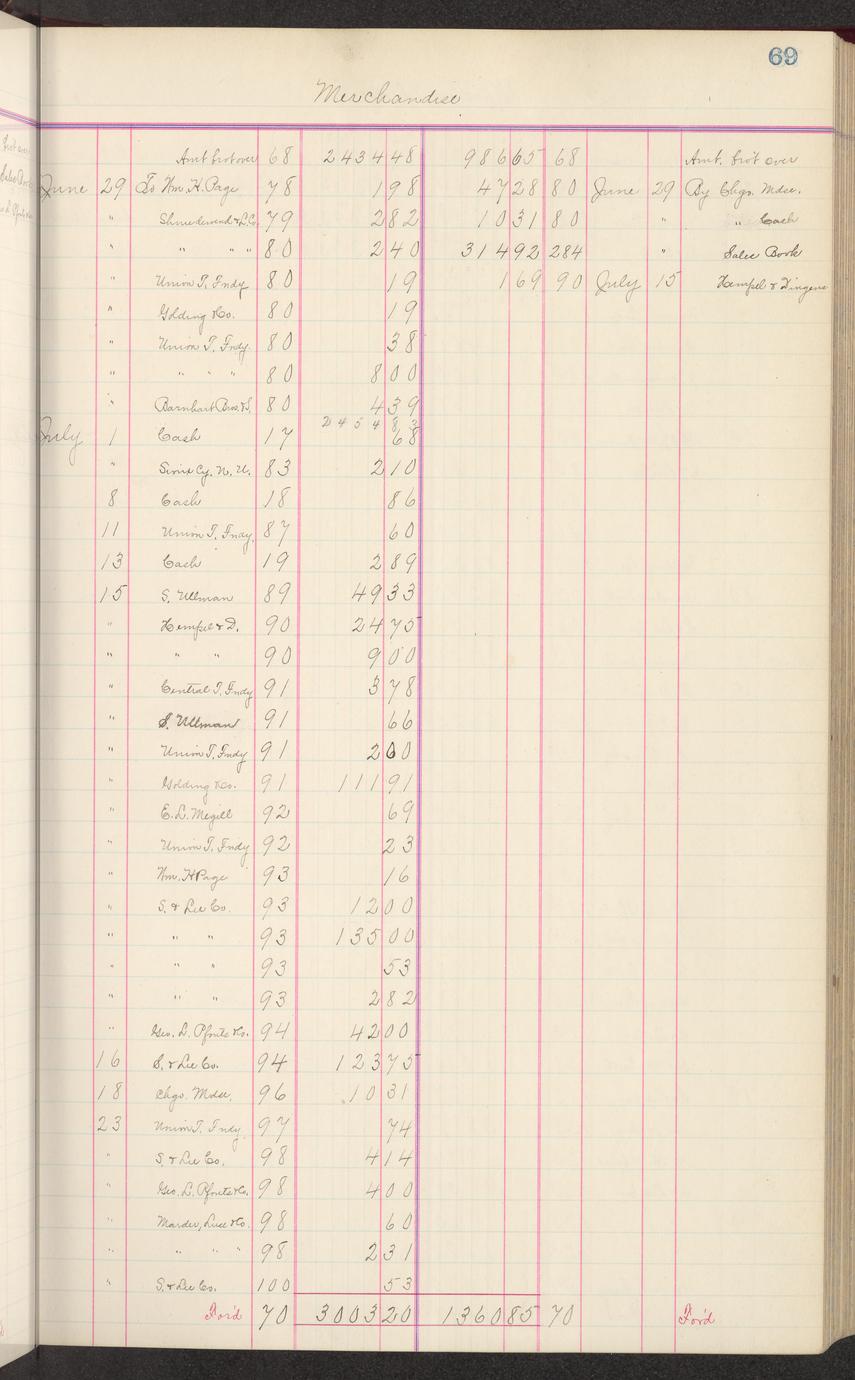 69
Merchandise
Amt brot over 68 2434 48 986 65 68 Amt. bro't over
June 29 To Wm. H. Page 78 1 98 47 28 80 June 29 By Chgo. Mdse.
" 79 2 82 10 31 80 " " Cash
" " " " 80 2 40 314 92 284 " Sales Book
" Union T. Fndy 80 19 1 69 90 July 15 Hempel & Dingens
" Golding & Co. 80 19
" Union T. Fndy. 80 38
" " " " 80 8 00
" Barnhart Bros. & S. 80 4 39
2454 83
July 1 Cash 17 68
" Sioux Cy. N. U. 83 2 10
8 Cash 18 86
11 Union T. Fndy. 87 60
13 Cash 19 2 89
15 S. Ullman 89 49 33
" Hempel & D. 90 24 75
" " " 90 9 00
" Central T. Fndy 91 3 78
" S. Ullman 91 66
" Union T. Fndy 91 2 00
" Golding & Co. 91 111 91
" E. L. Megill 92 69
" Union T. Fndy 92 23
" Wm. H Page 93 16
" S. & Lee Co. 93 12 00
" " " 93 135 00
" " " 93 53
" " " 93 2 82
" Geo. L. Pfouts & Co. 94 42 00
16 S. & Lee Co. 94 123 75
18 Chgo. Mdse. 96 10 31
23 Union T. Fndy. 97 74
" S. & Lee Co. 98 4 14
" Geo. L. Pfouts & Co. 98 4 00
" Marder, Luse & Co. 98 60
" " " " 98 2 31
" S. & Lee Co. 100 53
For'd 70 3003 20 1360 85 70 For'd